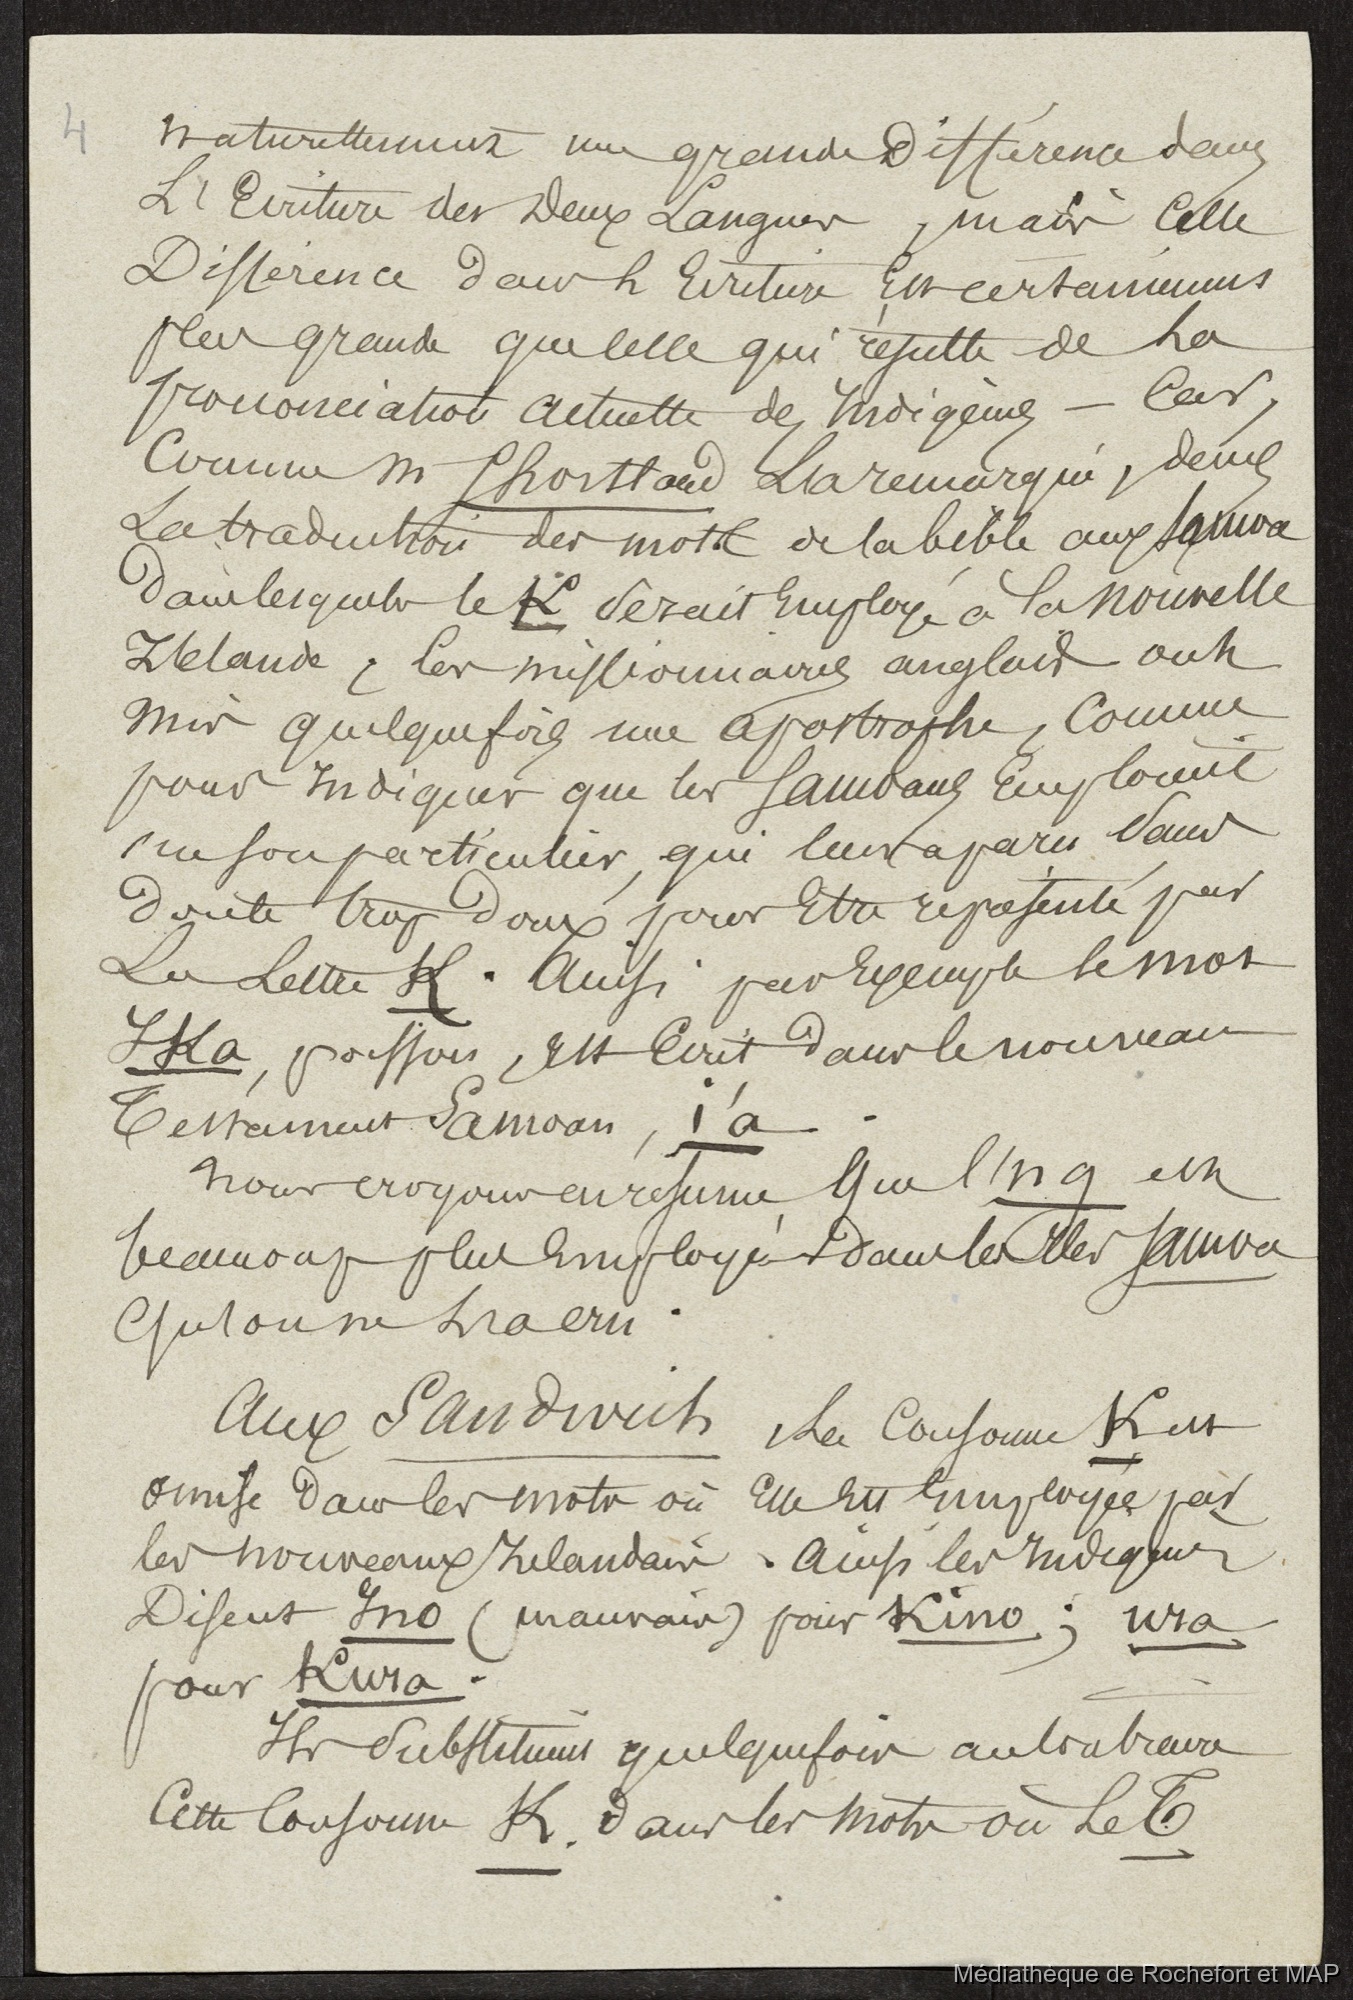 4
naturellement une grande Différence dans
L'Ecriture des Deux Langues, mais Cette
Différence dans l'Ecriture Est certainement
plus grande que celle qui résulte de La
prononciation actuelle des Indigènes — Car,
Comme M Shortland L'a remarqué, dans
La traduction des mots de la bible aux Samoa
Dans lesquels le K serait Employé à la nouvelle
Zélande, les missionnaires anglais ont
mis quelquefois une apostrophe, Comme
pour Indiquer que les Samoans Emploient
un son particulier, qui leur a paru sans
Doute trop Doux pour Etre représenté par
La Lettre K. Ainsi par Exemple le mot
IKa, poisson, est Ecrit Dans le nouveau
Testament Samoan, i'a.
nous croyons en résumé que l'ng est
beaucoup plus Employé Dans les Iles Samoa
qu'on ne l'a cru.
Aux Sandwich, La Consonne K est
omise Dans les mots où Elle Est Employée par
les nouveaux Zélandais. Ainsi les Indigènes
Disent Ino (mauvais) pour Kino; ura
pour Kura.
Ils Substituent quelquefois au contraire
Cette Consonne K. Dans les Mots où Le T
Médiathèque de Rochefort et MAP